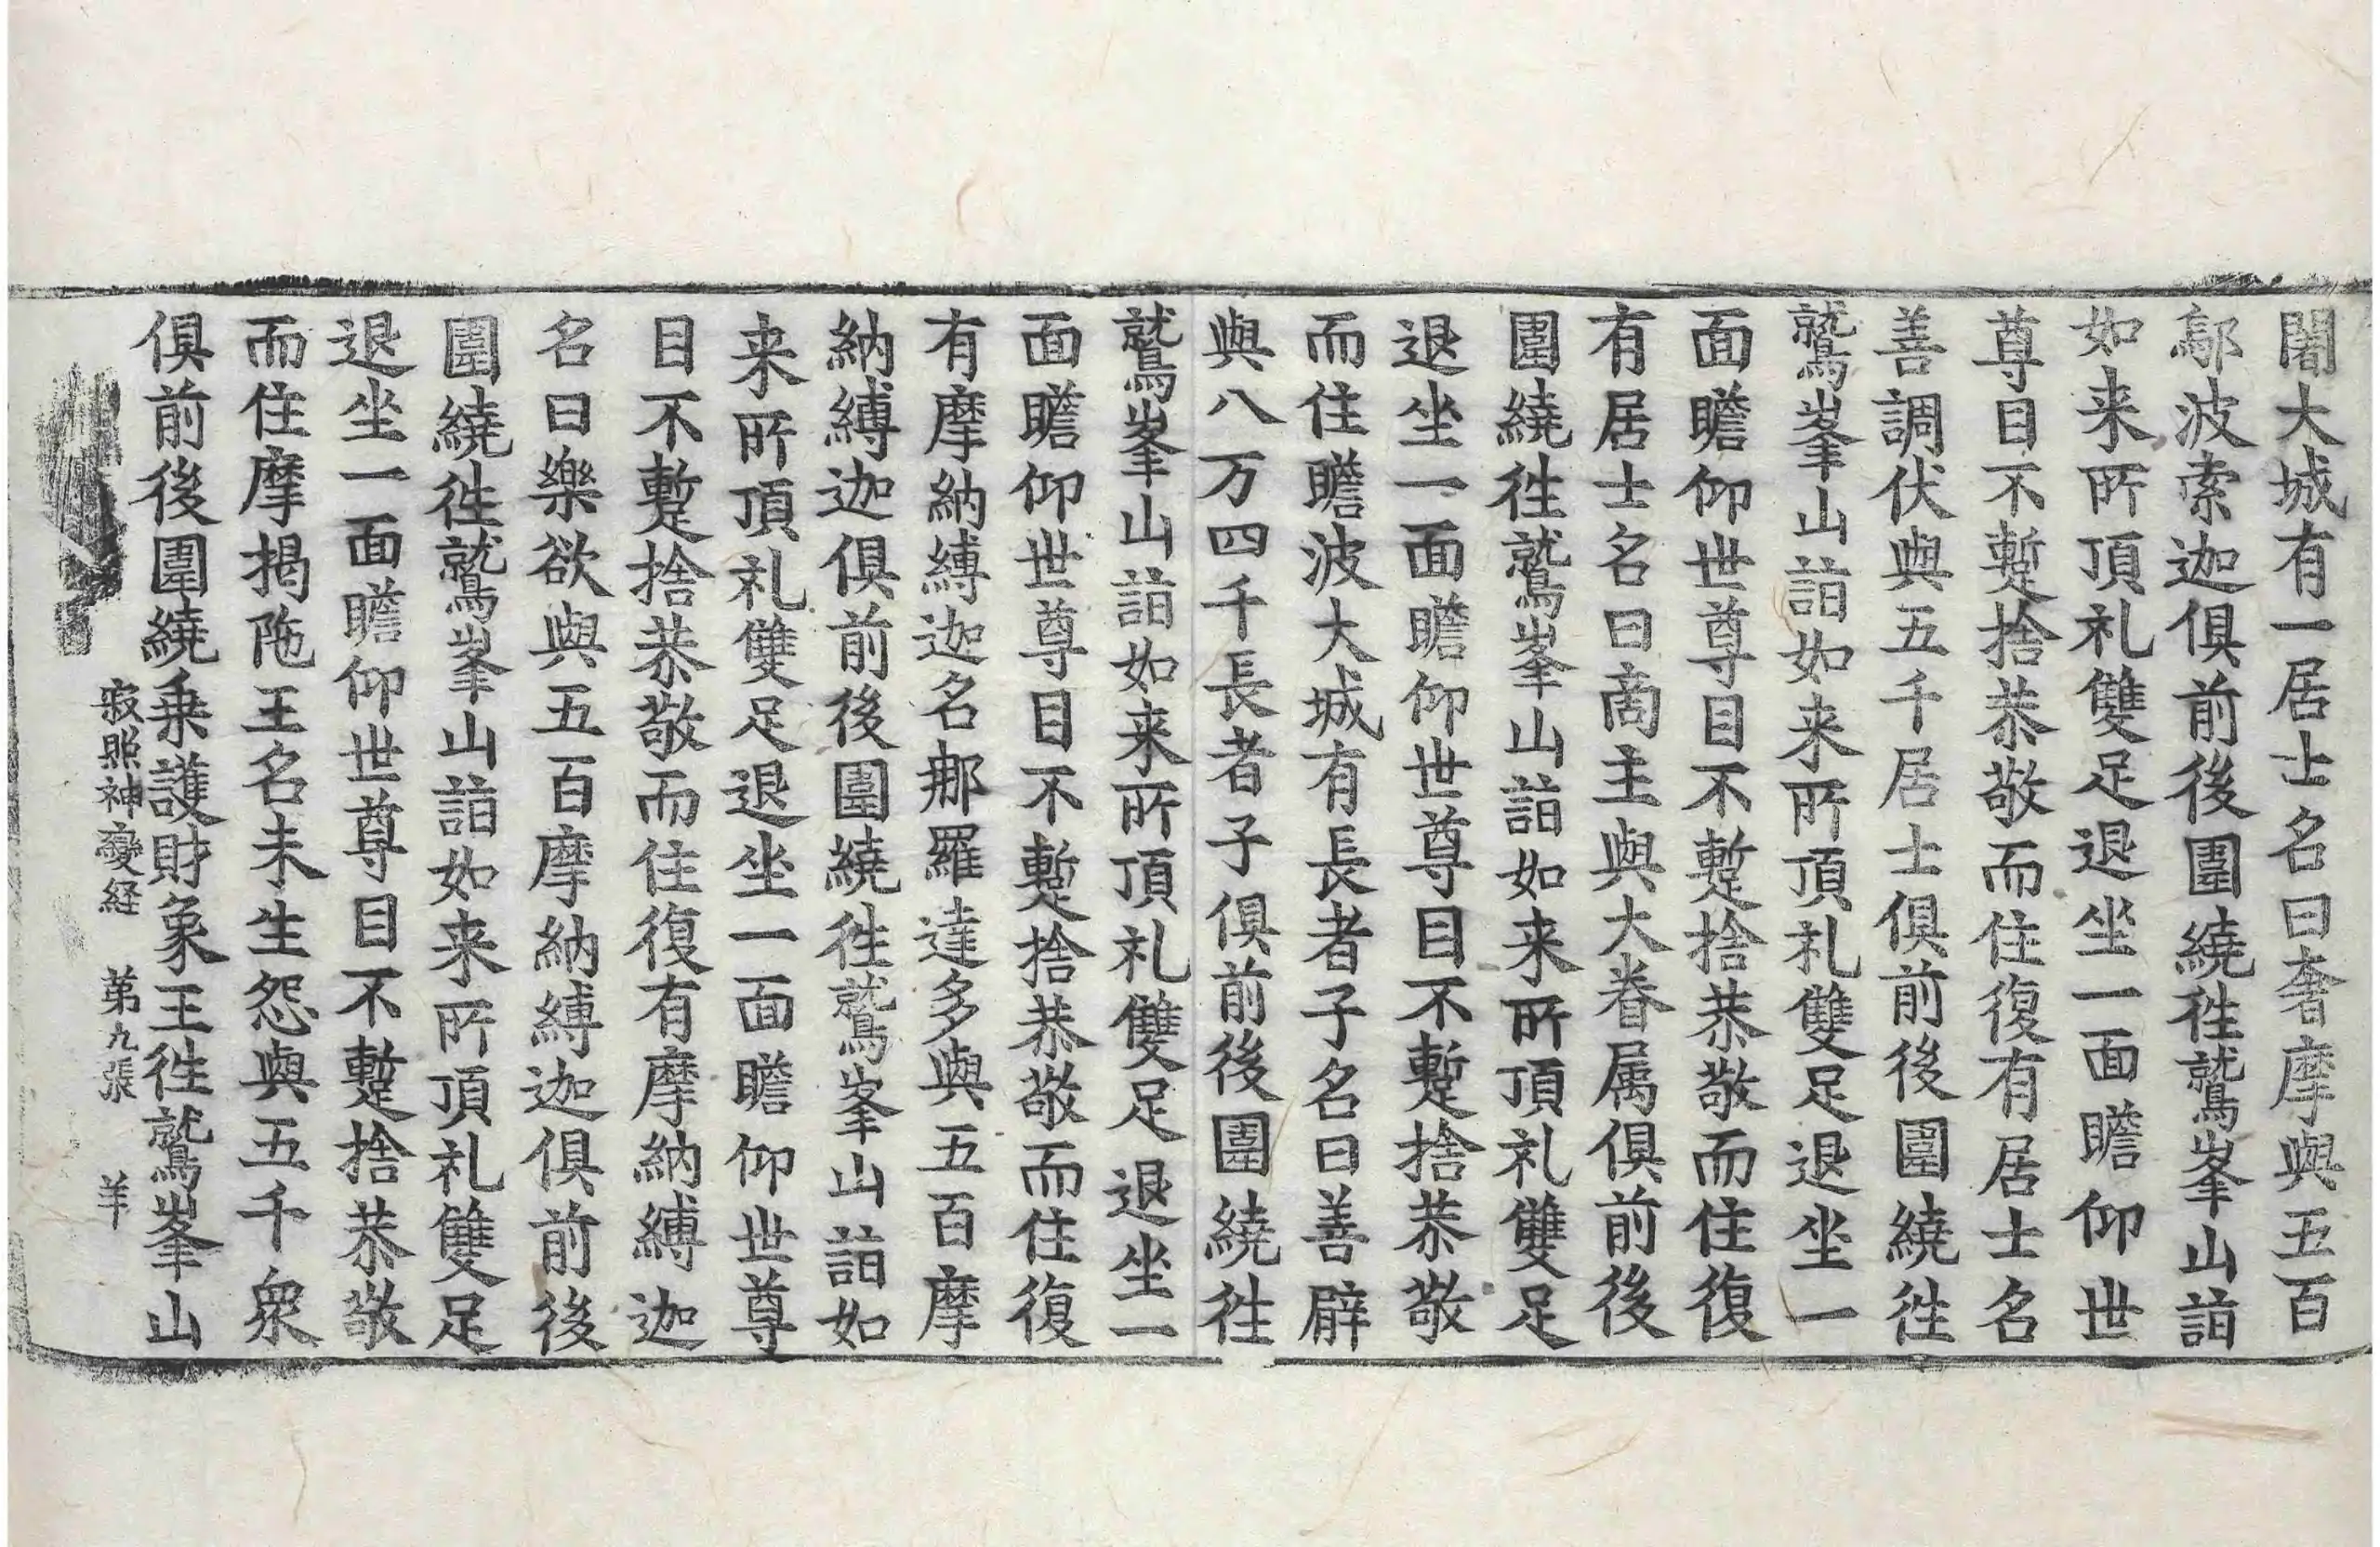 闍大城有一居士名曰奢摩與五百
鄔波索迦俱前後圍繞徃鷲峯山詣
如来所頂礼雙足退坐一面瞻仰世
尊目不蹔捨恭敬而住復有居士名
善調伏與五千居士俱前後圍繞徃
鷲峯山詣如来所頂礼雙足退坐一
面瞻仰世尊目不蹔捨恭敬而住復
有居士名曰商主與大眷属俱前後
圍繞徃鷲峯山詣如来所頂礼雙足
退坐一面瞻仰世尊目不蹔捨恭敬
而住瞻波大城有長者子名曰善辟
與八万四千長者子俱前後圍繞徃
鷲峯山詣如来所頂礼雙足退坐一
面瞻仰世尊目不蹔捨恭敬而住復
有摩納縛迦名那羅達多與五百摩
納縛迦俱前後圍繞徃鷲峯山詣如
来所頂礼雙足退坐一面瞻仰世尊
目不蹔捨恭敬而住復有摩納縛迦
名曰樂欲與五百摩納縛迦俱前後
圍繞徃鷲峯山詣如来所頂礼雙足
退坐一面瞻仰世尊目不蹔捨恭敬
而住摩揭陁王名未生怨與五千衆
俱前後圍繞乗護財象王徃鷲峯山
寂照神變経 苐九張 羊